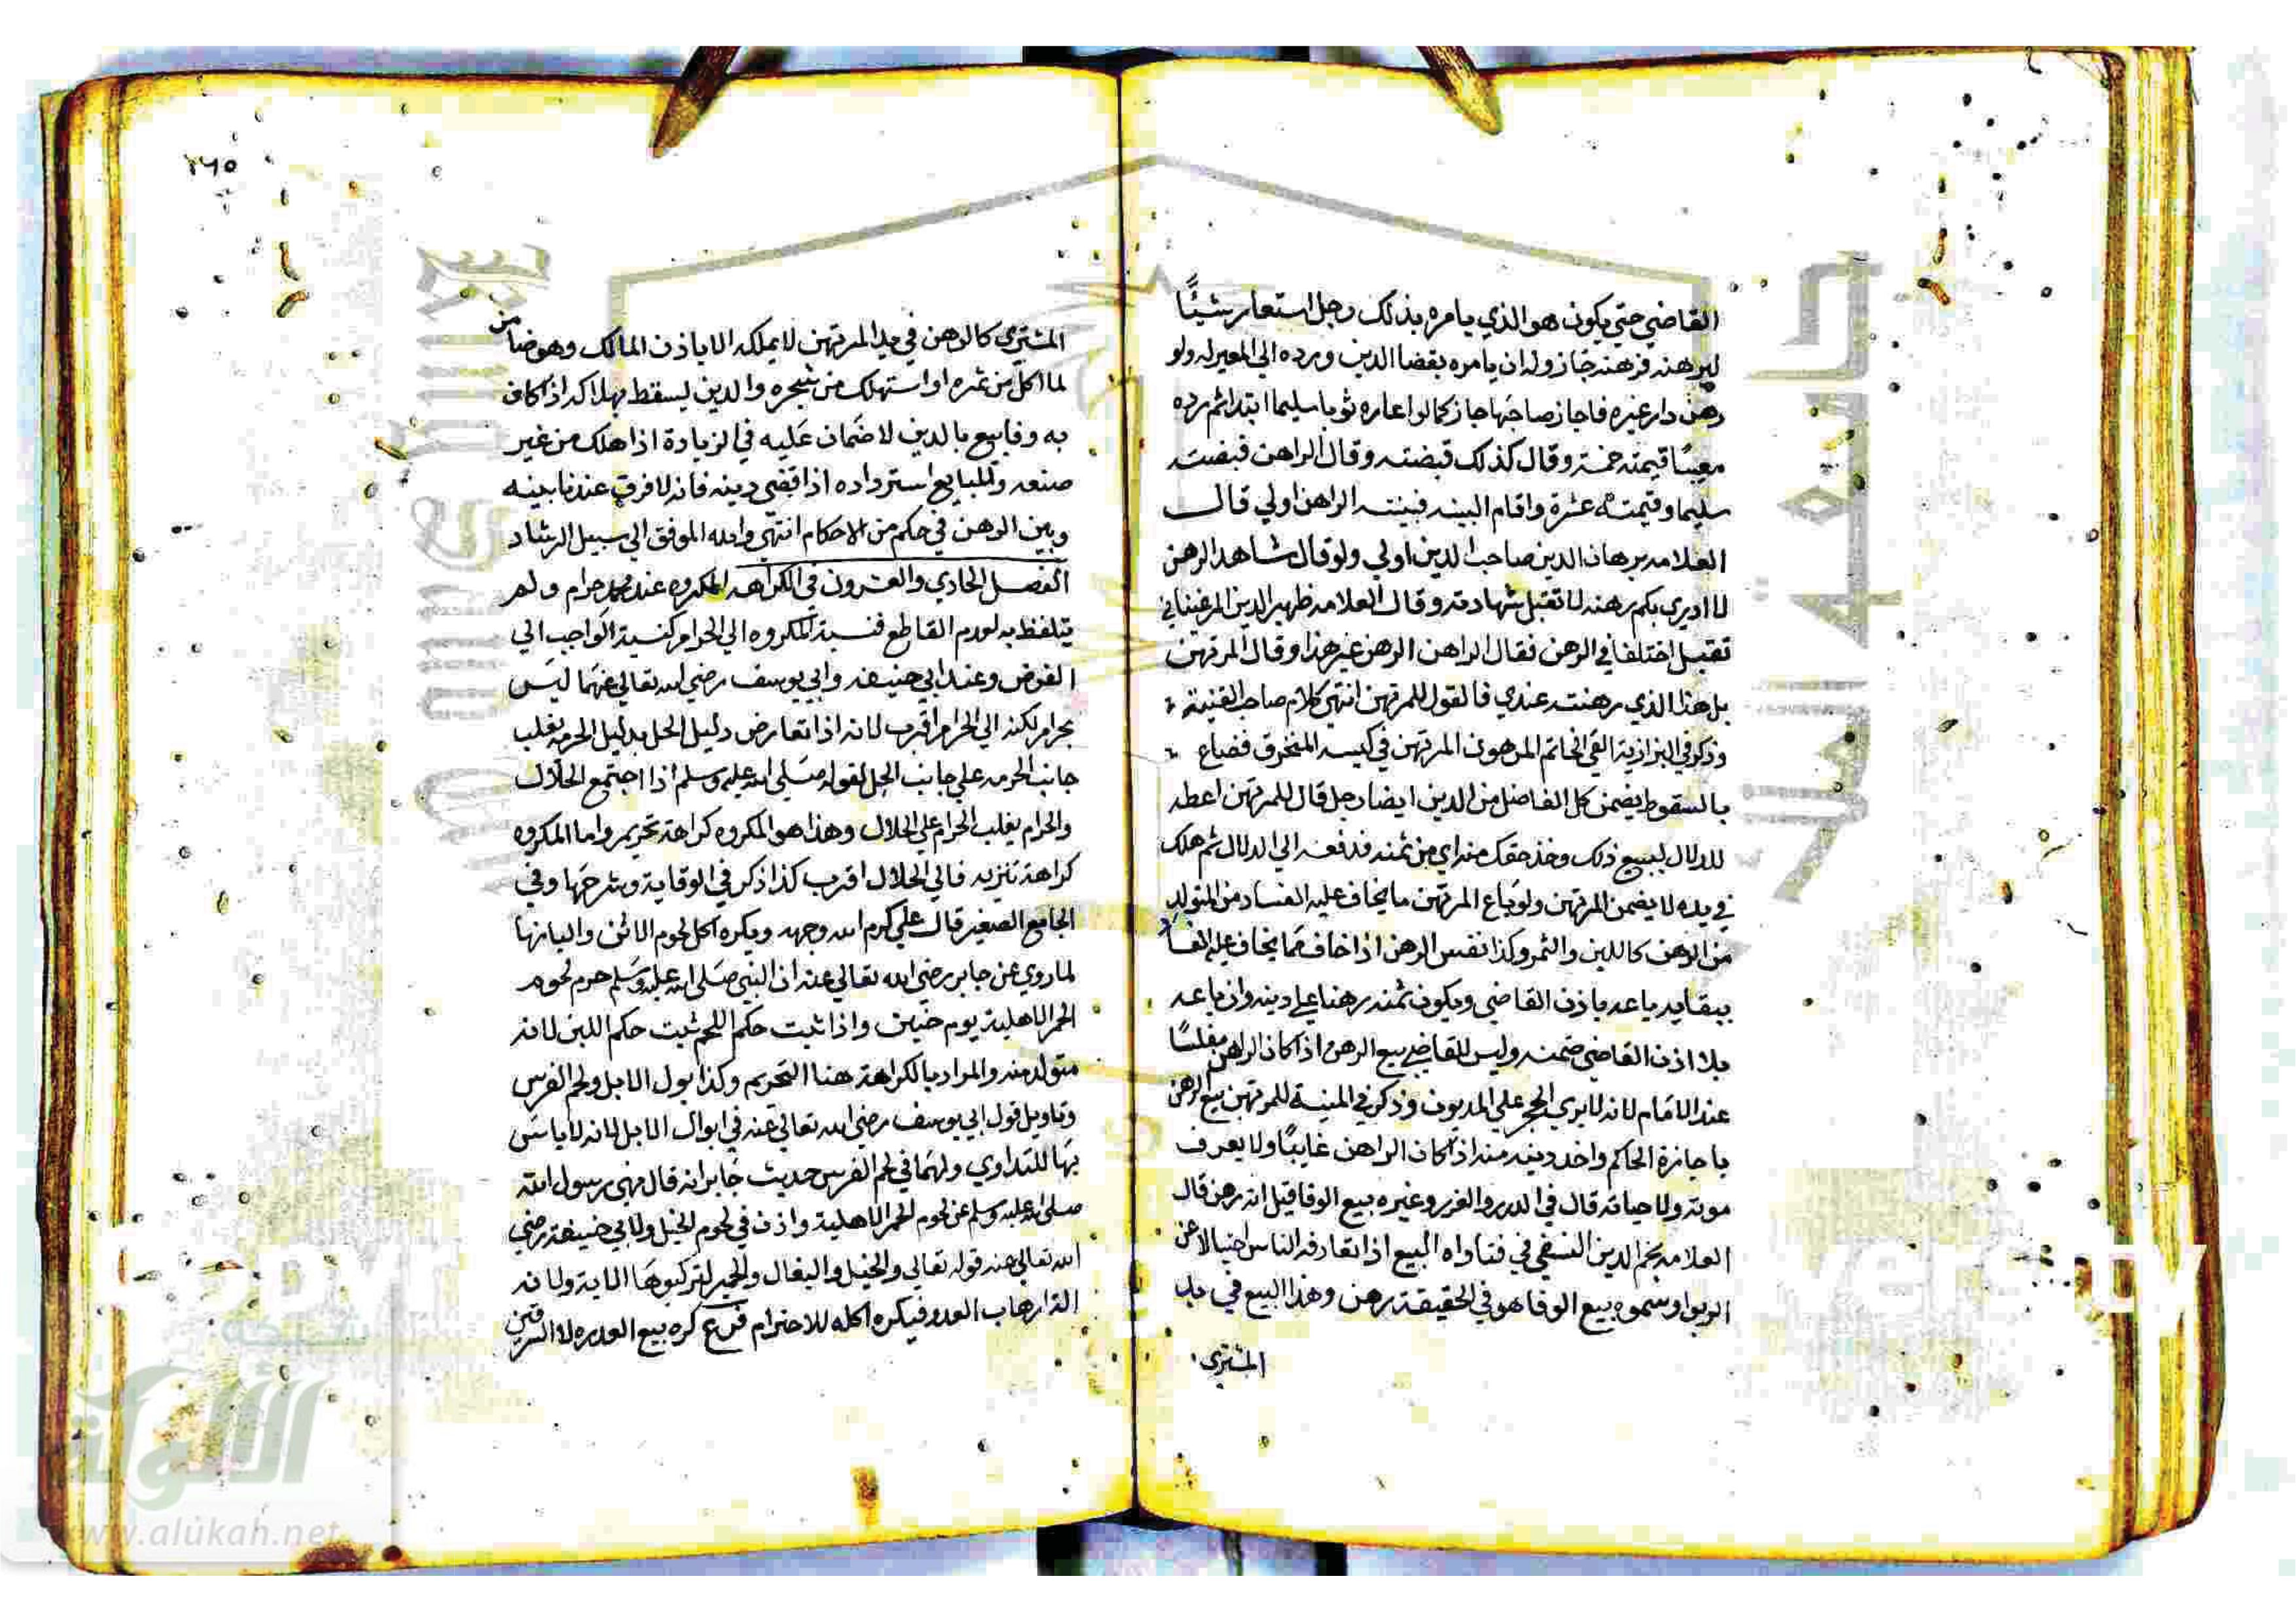 القاضي حتي يكون هو الذي يامره بذلك رجل استعار شيئًا
ليرهنه فرهنه جاز وله ان يامره بقضا الدين ورده الي المعير له ولو
رهن دار غيره فاجاز صاحبها جاز كما لو اعاره ثوبا سليما ابتدا ثم رده
معيبًا قيمته خمسة وقال كذلك قبضته وقال الراهن قبضته
سليما وقيمته عشرة واقام البينه فبينته الراهن اولي قال
العلامه برهان الدين صاحب الدين اولي ولو قال شاهد الرهن
لا ادري بكم رهنه لا تقبل شهادته وقال العلامه ظهير الدين المرغيناني
تقبل اختلفا في الرهن فقال الراهن الرهن غير هذا وقال المرتهن
بل هذا الذي رهنته عندي فالقول للمرتهن انتهي كلام صاحب القنية
وذكر في البزازية القي الخاتم المرهون المرتهن في كيسه المنخرق فضاع
بالسقوط يضمن كل الفاضل من الدين ايضا رجل قال للمرتهن اعطه
للدلال لبيع ذلك وخذ حقك منه اي من ثمنه فدفعه الي الدلال ثم هلك
في يده لا يضمن المرتهن ولو باع المرتهن ما يخاف عليه الفساد من المتولد
من الرهن كاللبن والثمر وكذا نفس الرهن اذا خاف مما يخاف عليه الفساد
ببقايه باعه باذن القاضي ويكون ثمنه رهنا علي دينه وان باعه
بلا اذن القاضي ضمنه وليس للقاضي بيع الرهن اذا كان الراهن مفلسًا
عند الامام لانه لا يري الحجر علي المديون وذكر في المنية للمرتهن بيع الرهن
باجازة الحاكم واخد دينه منه اذا كان الراهن غايبًا ولا يعرف
موته ولا حياته قال في الدرر والغرر وغيره بيع الوفا قيل انه رهن قال
العلامه نجم الدين النسفي في فتاواه البيع اذا تعارفه الناس احتيالا عن
الربوا وسموه بيع الوفا هو في الحقيقة رهن وهذا البيع في يد
المشتري
٢٦٥
المشتري كالرهن في يد المرتهن لا يملكه الا باذن المالك وهو ضامن
لما اكل من ثمره او استهلك من شجره والدين يسقط بهلاكه اذا كان
به وفا بيع بالدين لا ضمان عليه في الزيادة اذا هلك من غير
صنعه وللبايع استرداده اذا قضي دينه فانه لا فرق عندنا بينه
وبين الرهن في حكم من الاحكام انتهي والله الموفق الي سبيل الرشاد
الفصل الحادي والعشرون في الكراهه المكروه عند محمد حرام ولم
يتلفظ به لعدم القاطع فنسبة المكروه الي الحرام كنسبة الواجب الي
الفرض وعند ابي حنيفه وابي يوسف رضي الله تعالي عنهما ليس
بحرام لكنه الي الحرام اقرب لانه اذا تعارض دليل الحل بدليل الحرمه يغلب
جانب الحرمه علي جانب الحل لقوله صلي الله عليه وسلم اذا اجتمع الحلال
والحرام يغلب الحرام علي الحلال وهذا هو المكروه كراهة تحريم واما المكروه
كراهة تنزيه فالي الحلال اقرب كذا ذكر في الوقاية وشرحها وفي
الجامع الصغير قال علي كرم الله وجهه ويكره اكل لحوم الاتن والبانها
لما روي عن جابر رضي الله تعالي عنه ان النبي صلي الله عليه وسلم حرم لحوم
الحمر الاهلية يوم حنين واذا ثبت حكم اللحم ثبت حكم اللبن لانه
متولد منه والمراد بالكراهة هنا التحريم وكذا بول الابل ولحم الفرس
وتاويل قول ابي يوسف رضي الله تعالي عنه في ابوال الابل انه لا باس
بها للتداوي ولهما في لحم الفرس حديث جابر انه قال نهي رسول الله
صلي الله عليه وسلم عن لحوم الحمر الاهلية واذن في لحوم الخيل ولابي حنيفة رضي
الله تعالي عنه قوله تعالي والخيل والبغال والحمير لتركبوها الاية ولانه
الة ارهاب العدو فيكره اكله للاحترام فرع كره بيع العذره لا السرقين
شبكة
الألوكة
www.alukah.net